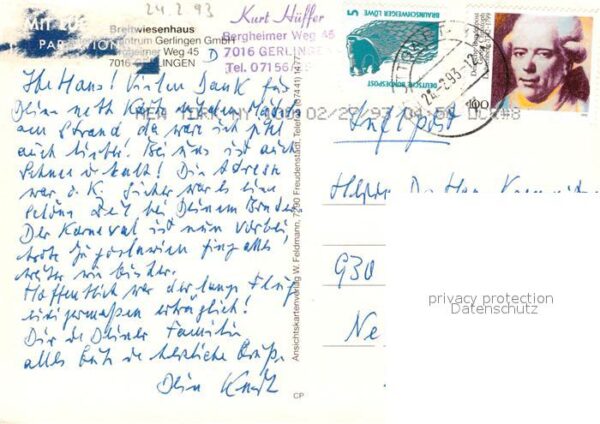 24.2.93
Breitwiesenhaus
Zentrum Gerlingen GmbH
Bergheimer Weg 45
7016 GERLINGEN
Kurt Hüffer
Bergheimer Weg 45
D 7016 GERLINGEN
Tel. 07156/
5 BRAUNSCHWEIGER LÖWE
DEUTSCHE BUNDESPOST
100
Hans! Vielen Dank für
Deine nette Karte mit den
am Strand da wäre ich jetzt
auch lieber! Bei uns ist auch
Schnee u. kalt! Die Adresse
war o.K. Sicher war es eine
schöne Zeit bei Deinem Bruder
Der Karneval ist nun vorbei,
trotz Jugoslawien ging alles
weiter wie bisher.
Hoffentlich war der lange Flug
einigermaßen erträglich!
Dir u. Deiner Familie
alles Gute u. herzliche Grüße
Dein Kurt
NEW YORK NY 02/27/93 04:56
Luftpost
Ansichtskartenverlag W. Feldmann, 7290 Freudenstadt, Telefon (07441) 1477
930
Ne
privacy protection
Datenschutz
CP